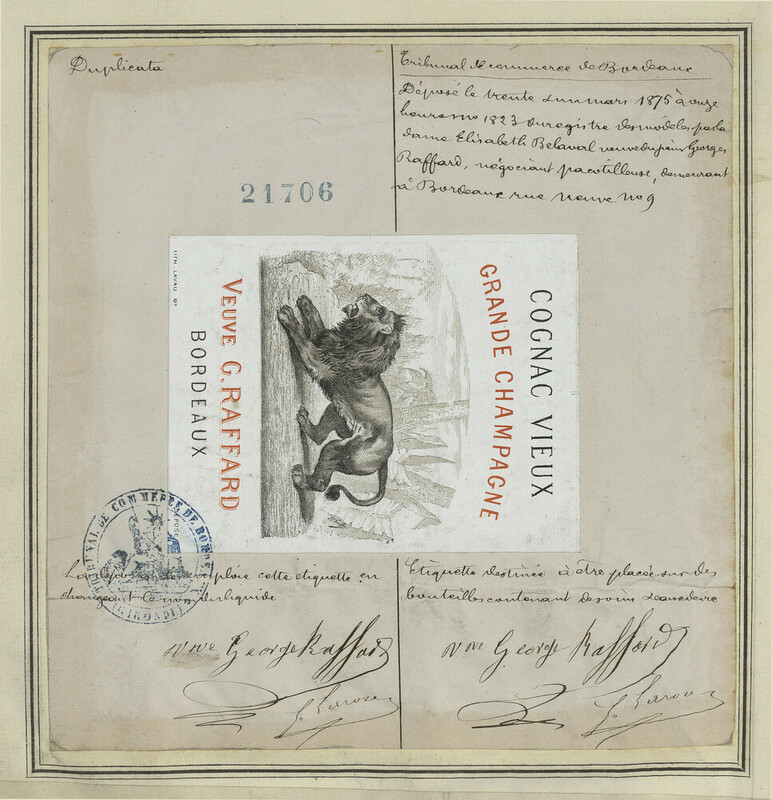 Duplicata
Tribunal de commerce de Bordeaux
Déposé le trente un mars 1875 à onze
heures no 1823 du registre des modèles par la
dame Elisabeth Belaval veuve du sieur Georges
Raffard, négociant pacotilleuse, demeurant
à Bordeaux rue neuve no 9
21706
COGNAC VIEUX
GRANDE CHAMPAGNE
VEUVE G. RAFFARD
BORDEAUX
LITH. LAVAU Bx
TRIBUNAL DE COMMERCE DE BORDEAUX
(GIRONDE)
cette étiquette en
changeant le nom du liquide
Etiquette destinée à être placée sur des
bouteilles contenant
Vve George Raffard
Vve George Raffard